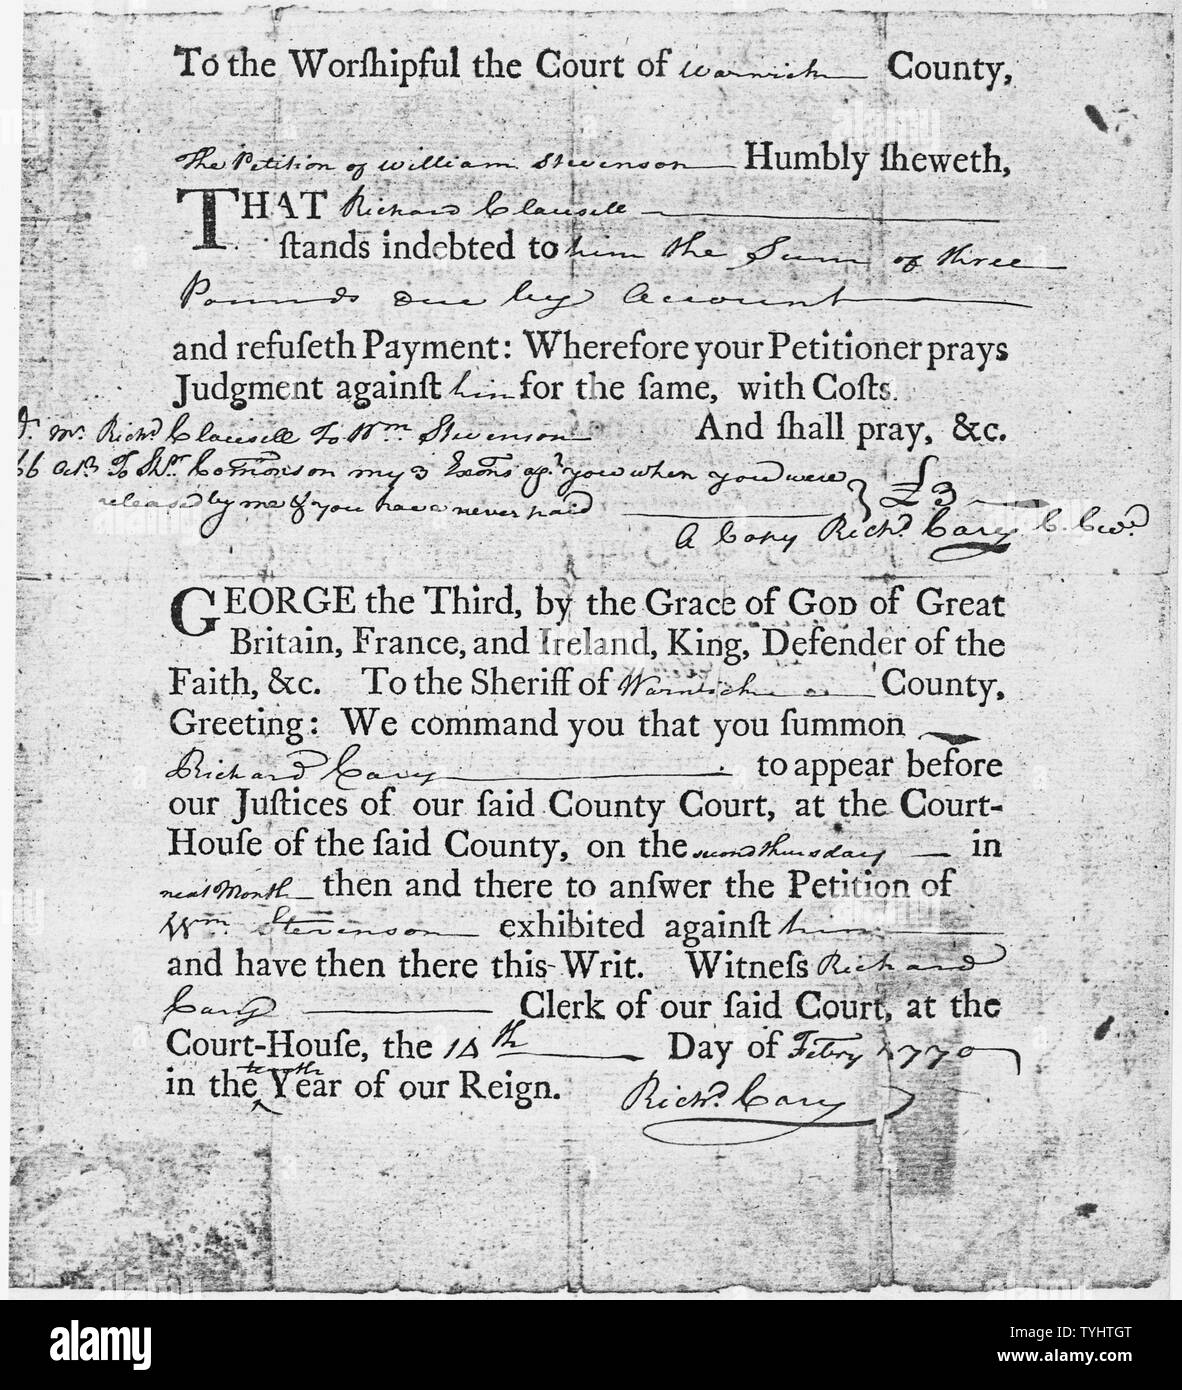 To the Worſhipful the Court of Warwick County,
The Petition of William Stevenson Humbly ſheweth,
THAT Richard Clausell
ſtands indebted to him the Sum of three
Pounds due by Account
and refuſeth Payment: Wherefore your Petitioner prays
Judgment againſt him for the ſame, with Coſts.
And ſhall pray, &c.
Mr. Richd Clausell To Wm Stevenson
66 To Shff. on my 3 Exons agt. you when you were
released by me & you have never paid £3
A Copy Richd. Cary C. Cur.
GEORGE the Third, by the Grace of GOD of Great
Britain, France, and Ireland, King, Defender of the
Faith, &c. To the Sheriff of Warwick County,
Greeting: We command you that you ſummon
Richard Cary to appear before
our Juſtices of our ſaid County Court, at the Court-
Houſe of the ſaid County, on the second thursday in
next Month then and there to anſwer the Petition of
Wm. Stevenson exhibited againſt him
and have then there this Writ. Witneſs Richard
Cary Clerk of our ſaid Court, at the
Court-Houſe, the 14th Day of Febry 1770
in the tenth Year of our Reign. Richd. Cary
alamy
Image ID: TYHTGT
www.alamy.com